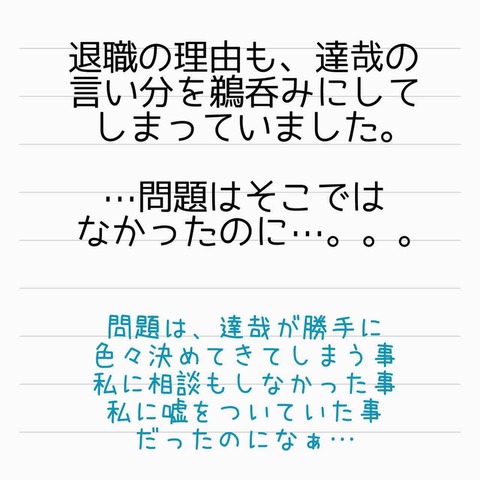 退職の理由も、達哉の
言い分を鵜呑みにして
しまっていました。
…問題はそこでは
なかったのに…。。。
問題は、達哉が勝手に
色々決めてきてしまう事
私に相談もしなかった事
私に嘘をついていた事
だったのになぁ…